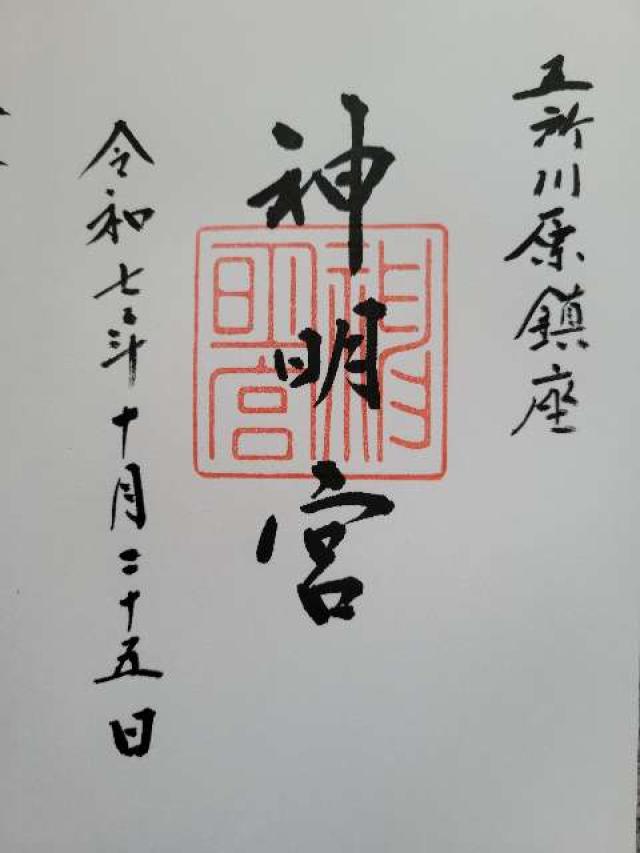 五所川原鎮座
神明宮
令和七年十月二十五日